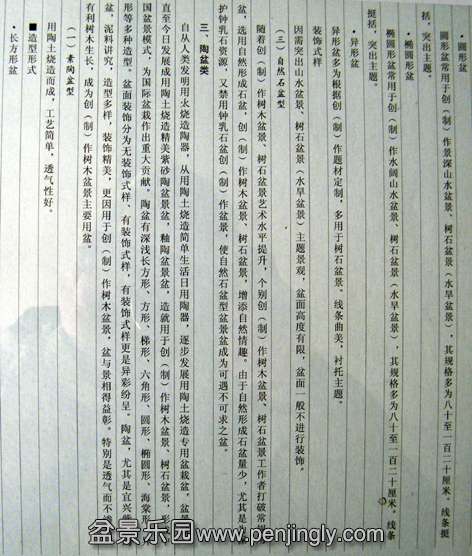 圆形盆
圆形盆常用于创（制）作景深山水盆景、树石盆景（水旱盆景），其规格多为八十至一百二十厘米。线条挺
括，突出主题。
·椭圆形盆
椭圆形盆常用于创（制）作水阔山水盆景、树石盆景（水旱盆景），其规格多为八十至一百二十厘米。线条
挺括，突出主题。
·异形盆
异形盆多为根据创（制）作题材定制，多用于树石盆景。线条曲美，衬托主题。
装饰式样
因需突出山水盆景、树石盆景（水旱盆景）主题景观，盆面高度有限，盆面一般不进行装饰。
（三）自然石盆型
随着创（制）作树木盆景、树石盆景艺术水平提升，个别创（制）作树木盆景、树石盆景工作者打破常规
盆，选用自然形成石盆，创（制）作树木盆景、树石盆景，增添自然情趣。由于自然形成石盆量少，尤其是
护钟乳石资源，又禁用钟乳石盆创（制）作盆景，使自然石盆型盆景盆成为可遇不可求之盆。
三、陶盆类
自从人类发明用火烧造陶器，从用陶土烧造简单生活日用陶器，逐步发展用陶土烧造专用盆栽盆、盆景
直至今日发展成用陶土烧造精美紫砂陶盆景盆、釉陶盆景盆，造就用于创（制）作树木盆景、树石盆景，形
国盆景模式，为国际盆栽作出重大贡献。陶盆有深浅长方形、方形、梯形、六角形、圆形、椭圆形、海棠形
形等多种造型。盆面装饰分为无装饰式样、有装饰式样，有装饰式样更是异彩纷呈。陶盆，尤其是宜兴紫
盆，泥料讲究，造型多样，装饰精美，更因用于创（制）作树木盆景，盆与景相得益彰。特别是透气而不透
有利树木生长，成为创（制）作树木盆景主要用盆。
（一）素陶盆型
用陶土烧造而成，工艺简单，透气性好。
■造型形式
·长方形盆
盆景乐园www.penjingly.com